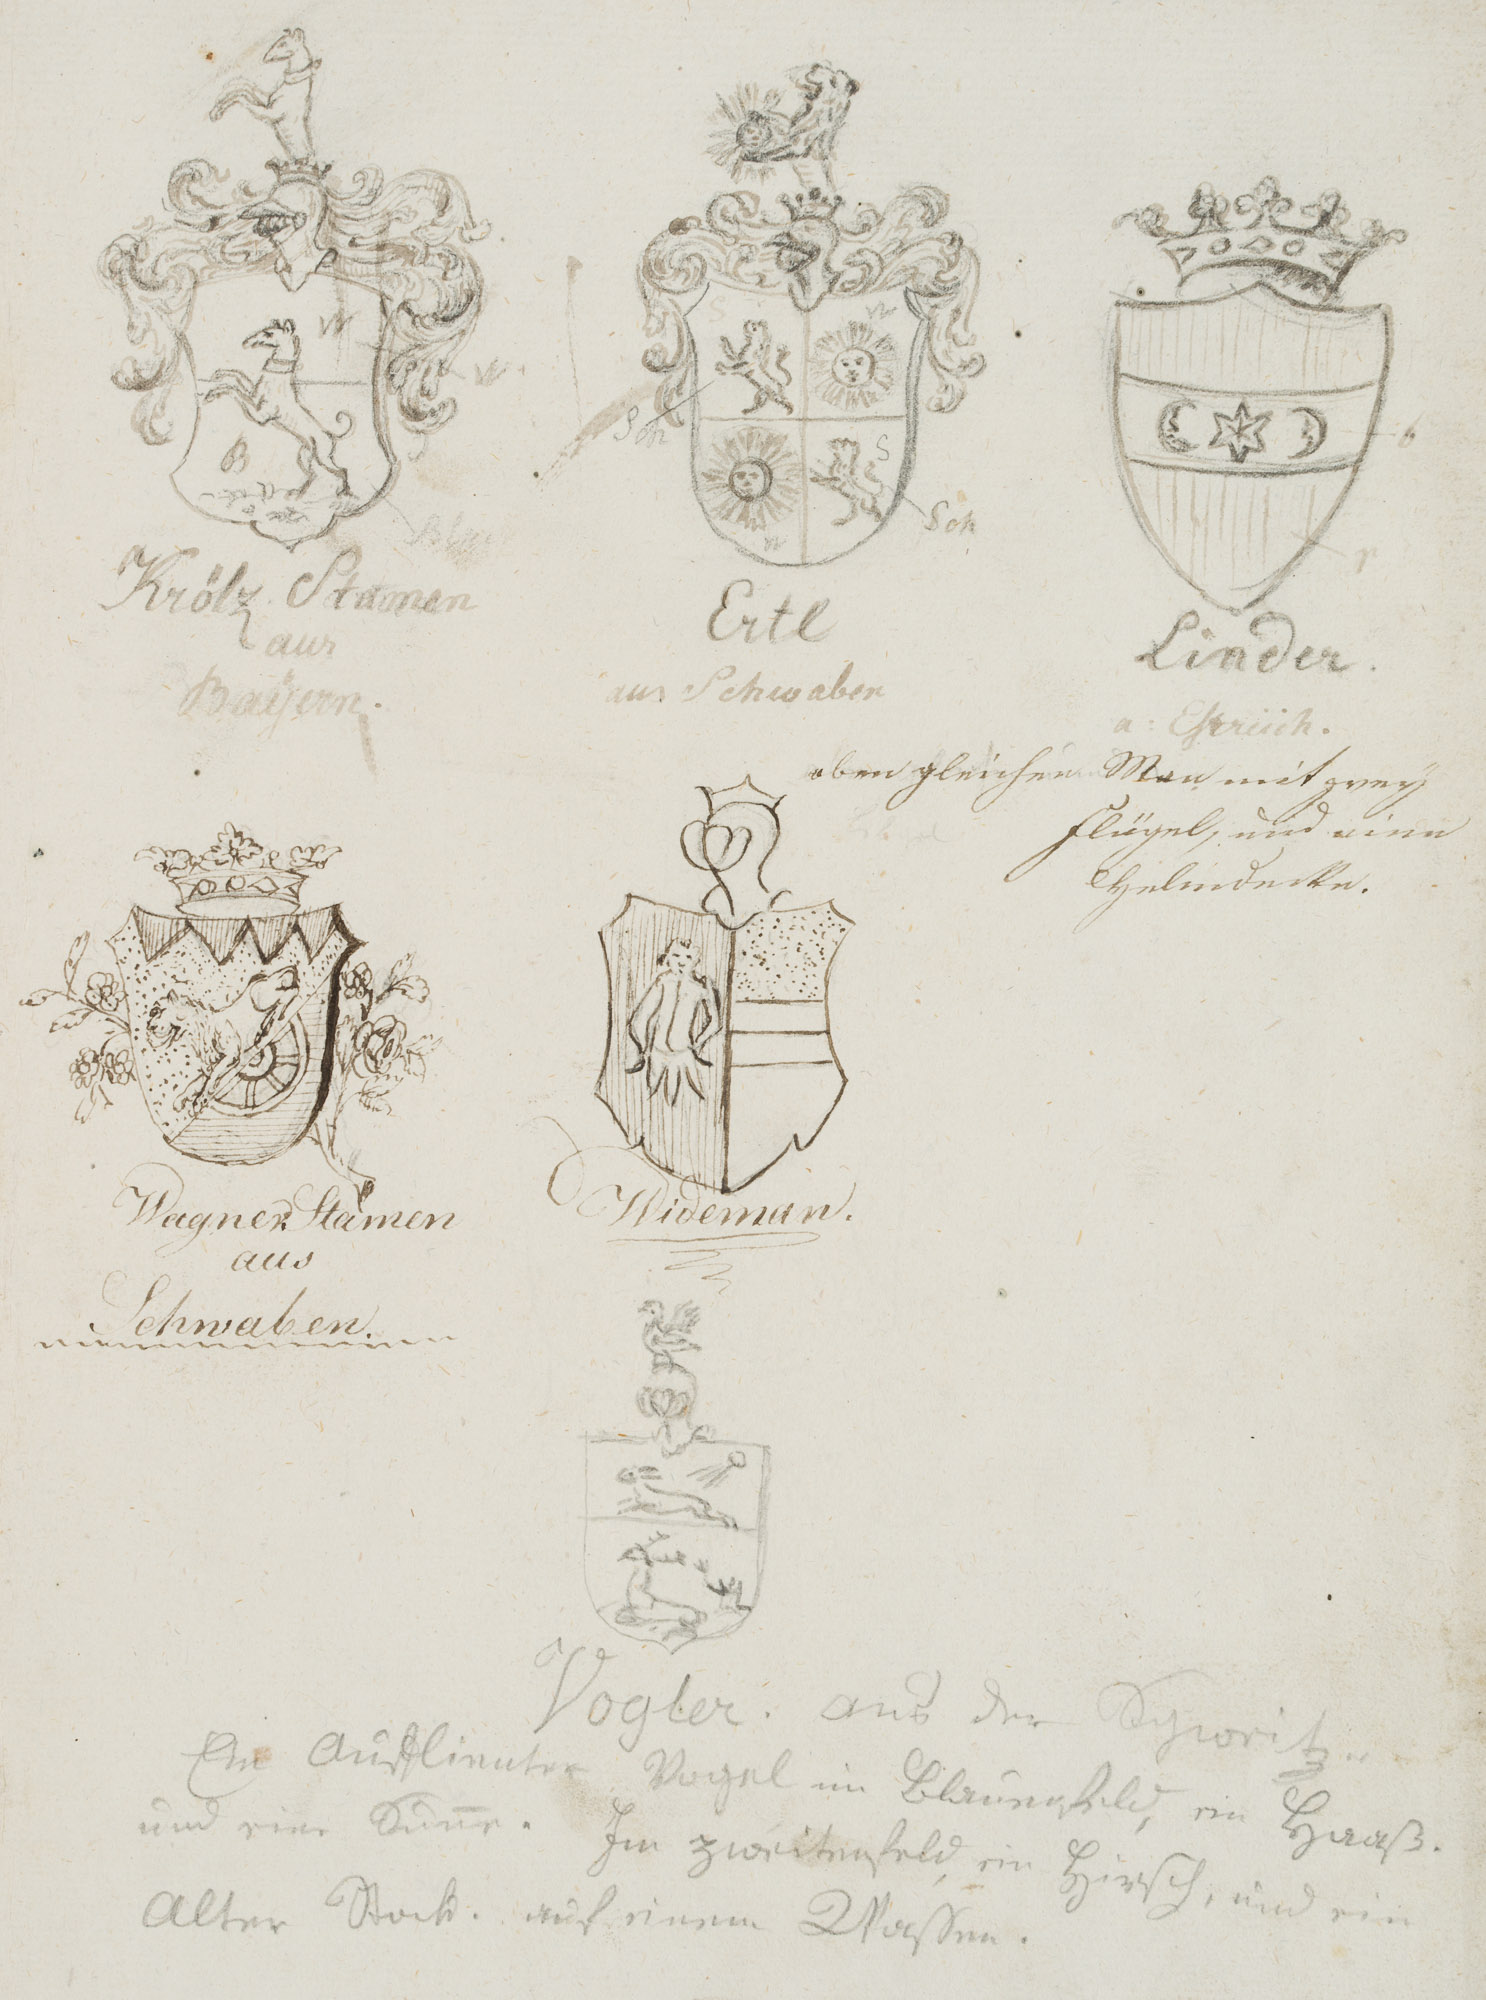 W
W
B
Krölz Stamen
aus
Baÿern.
S
W
Sch
S
W
Sch
Ertl
aus Schwaben
b
r
Linder.
a: Estreich.
oben gleichen Man mit zwey
Flügel, und einer
Helmdecke.
Wagner Stamen
aus
Schwaben.
Wideman.
Vogler. aus der Schweitz.
Ein Auffliender Vogel im Blauenfeld, ein Haaß.
und eine Sunn̄e. Im zweitenfeld ein Hirsch, und ein
Alter Stock. auf einem Wassen.